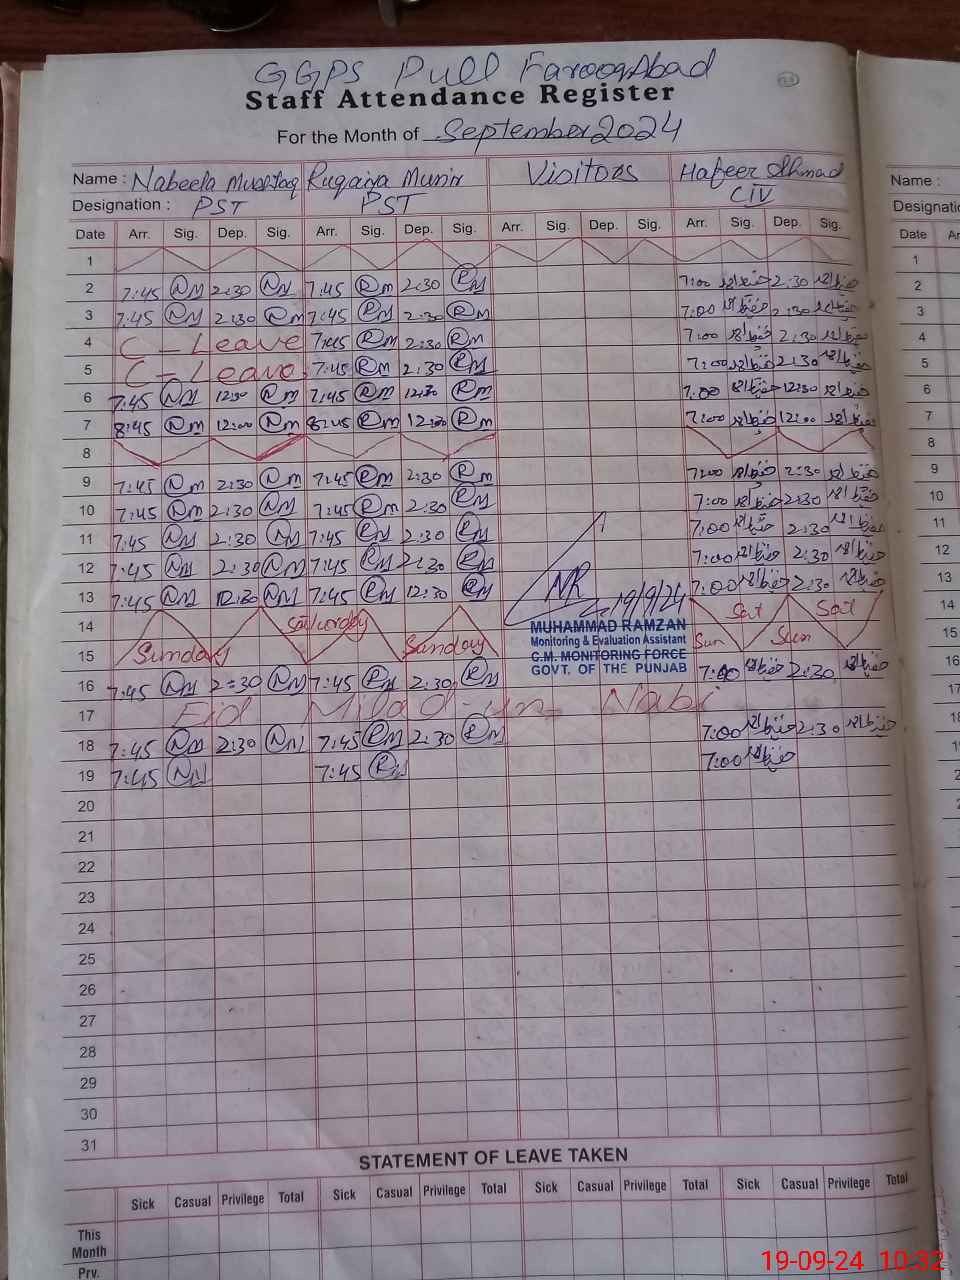 GGPS Pull FarooqAbad
Staff Attendance Register
For the Month of September 2024
Name : Nabeela Mushtaq Ruqaiya Munir Visitors Hafeez Ahmad
Designation : PST PST CIV
Date Arr. Sig. Dep. Sig. Arr. Sig. Dep. Sig. Arr. Sig. Dep. Sig. Arr. Sig. Dep. Sig.
1
2 7:45 NM 2:30 NM 7:45 RM 2:30 RM 7:00 2:30
3 7:45 NM 2:30 NM 7:45 RM 2:30 RM 7:00 2:30
4 C-Leave 7:45 RM 2:30 RM 7:00 2:30
5 C-Leave 7:45 RM 2:30 RM 7:00 2:30
6 7:45 NM 12:30 NM 7:45 RM 12:30 RM 7:00 12:30
7 8:45 NM 12:00 NM 8:45 RM 12:00 RM 7:00 12:00
8
9 7:45 NM 2:30 NM 7:45 RM 2:30 RM 7:00 2:30
10 7:45 NM 2:30 NM 7:45 RM 2:30 RM 7:00 2:30
11 7:45 NM 2:30 NM 7:45 RM 2:30 RM 7:00 2:30
12 7:45 NM 2:30 NM 7:45 RM 2:30 RM 7:00 2:30
13 7:45 NM 12:30 NM 7:45 RM 12:30 RM 7:00 2:30
14 Saturday Sat Sat
15 Sunday Sunday Sun Sun
NR 19/9/24
MUHAMMAD RAMZAN
Monitoring & Evaluation Assistant
C.M. MONITORING FORCE
GOVT. OF THE PUNJAB
16 7:45 NM 2:30 NM 7:45 RM 2:30 RM 7:00 2:30
17 Eid Milad-un-Nabi
18 7:45 NM 2:30 NM 7:45 RM 2:30 RM 7:00 2:30
19 7:45 NM 7:45 RM 7:00
20
21
22
23
24
25
26
27
28
29
30
31
STATEMENT OF LEAVE TAKEN
Sick Casual Privilege Total Sick Casual Privilege Total Sick Casual Privilege Total Sick Casual Privilege Total
This
Month
Prv.
Name :
Date
1
2
3
4
5
6
7
8
9
10
11
12
13
14
15
16
17
19-09-24 10:32